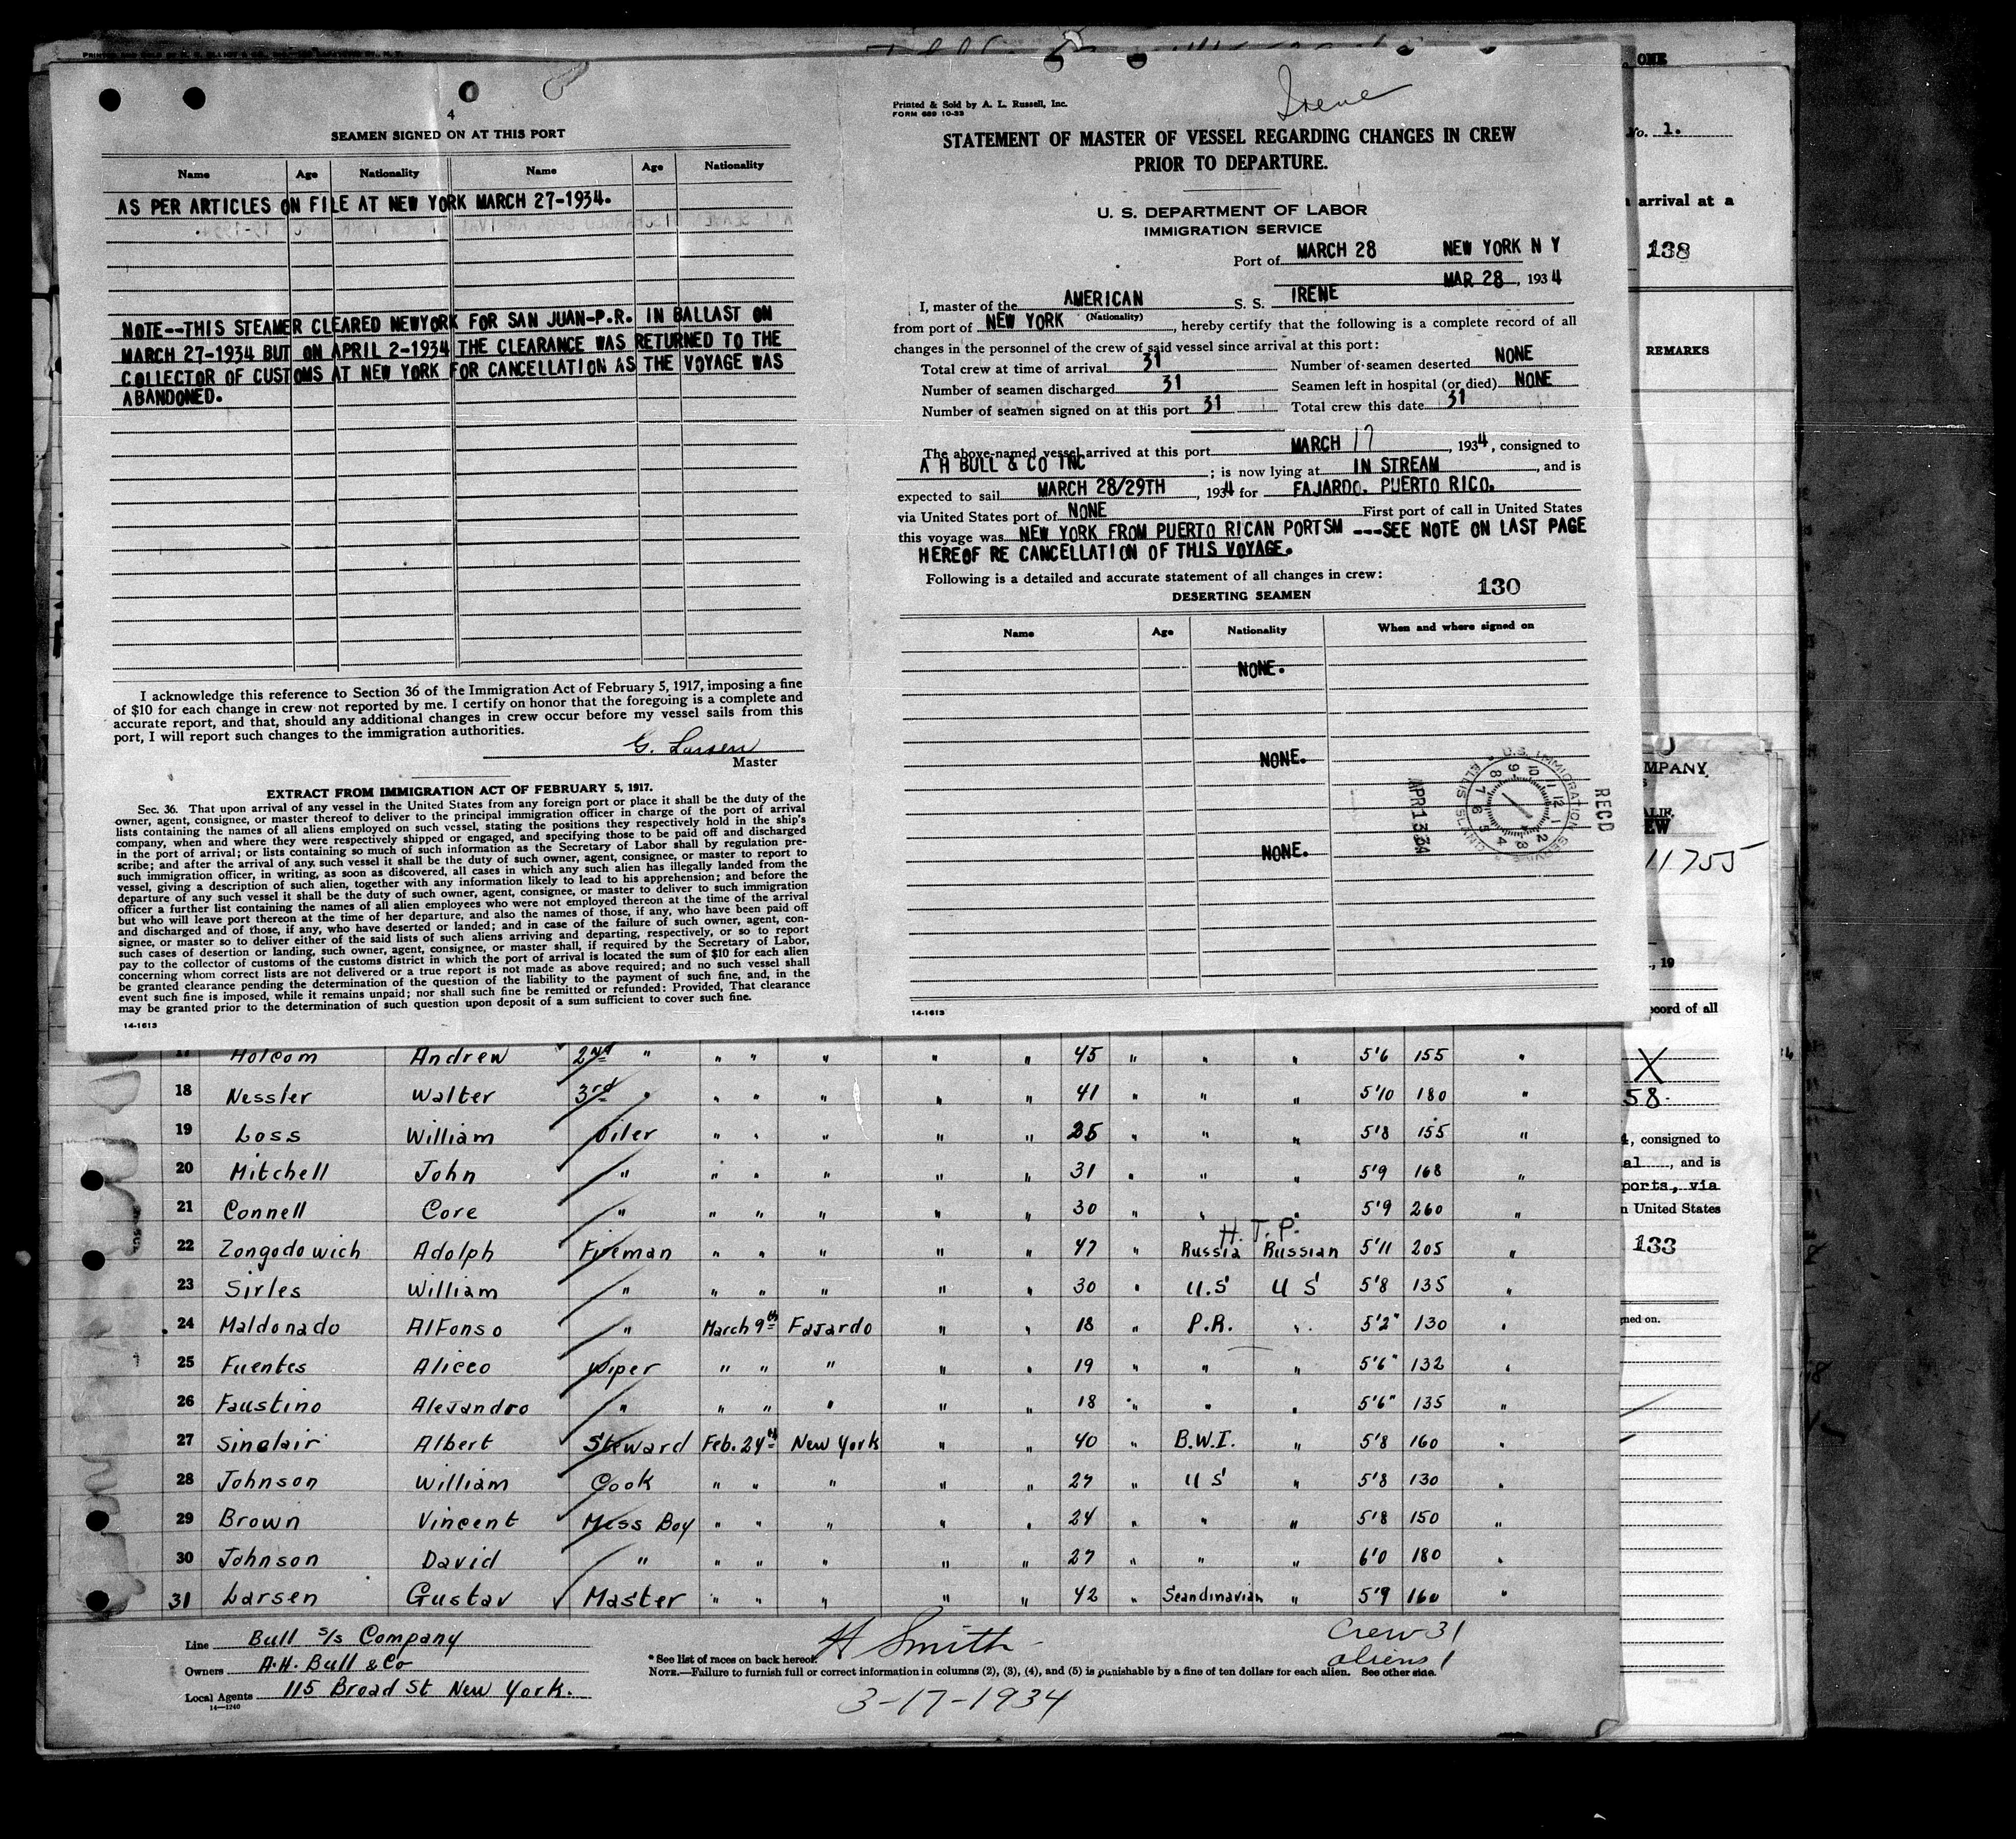 4
SEAMEN SIGNED ON AT THIS PORT
Name Age Nationality Name Age Nationality
AS PER ARTICLES ON FILE AT NEW YORK MARCH 27-1934.
NOTE--THIS STEAMER CLEARED NEWYORK FOR SAN JUAN-P.R. IN BALLAST ON
MARCH 27-1934 BUT ON APRIL 2-1934 THE CLEARANCE WAS RETURNED TO THE
COLLECTOR OF CUSTOMS AT NEW YORK FOR CANCELLATION AS THE VOYAGE WAS
ABANDONED.
I acknowledge this reference to Section 36 of the Immigration Act of February 5, 1917, imposing a fine
of $10 for each change in crew not reported by me. I certify on honor that the foregoing is a complete and
accurate report, and that, should any additional changes in crew occur before my vessel sails from this
port, I will report such changes to the immigration authorities.
G. Larsen
Master
EXTRACT FROM IMMIGRATION ACT OF FEBRUARY 5, 1917.
Sec. 36. That upon arrival of any vessel in the United States from any foreign port or place it shall be the duty of the
owner, agent, consignee, or master thereof to deliver to the principal immigration officer in charge of the port of arrival
lists containing the names of all aliens employed on such vessel, stating the positions they respectively hold in the ship's
company, when and where they were respectively shipped or engaged, and specifying those to be paid off and discharged
in the port of arrival; or lists containing so much of such information as the Secretary of Labor shall by regulation pre-
scribe; and after the arrival of any such vessel it shall be the duty of such owner, agent, consignee, or master to report to
such immigration officer, in writing, as soon as discovered, all cases in which any such alien has illegally landed from the
vessel, giving a description of such alien, together with any information likely to lead to his apprehension; and before the
departure of any such vessel it shall be the duty of such owner, agent, consignee, or master to deliver to such immigration
officer a further list containing the names of all alien employees who were not employed thereon at the time of the arrival
but who will leave port thereon at the time of her departure, and also the names of those, if any, who have been paid off
and discharged and of those, if any, who have deserted or landed; and in case of the failure of such owner, agent, con-
signee, or master so to deliver either of the said lists of such aliens arriving and departing, respectively, or so to report
such cases of desertion or landing, such owner, agent, consignee, or master shall, if required by the Secretary of Labor,
pay to the collector of customs of the customs district in which the port of arrival is located the sum of $10 for each alien
concerning whom correct lists are not delivered or a true report is not made as above required; and no such vessel shall
be granted clearance pending the determination of the question of the liability to the payment of such fine, and, in the
event such fine is imposed, while it remains unpaid; nor shall such fine be remitted or refunded: Provided, That clearance
may be granted prior to the determination of such question upon deposit of a sum sufficient to cover such fine.
14-1613
Irene
Printed & Sold by A. L. Russell, Inc.
FORM 689 10-33
STATEMENT OF MASTER OF VESSEL REGARDING CHANGES IN CREW
PRIOR TO DEPARTURE.
U. S. DEPARTMENT OF LABOR
IMMIGRATION SERVICE
Port of MARCH 28 NEW YORK N Y
MAR 28, 1934
I, master of the AMERICAN S. S. IRENE
(Nationality)
from port of NEW YORK, hereby certify that the following is a complete record of all
changes in the personnel of the crew of said vessel since arrival at this port:
Total crew at time of arrival 31 Number of seamen deserted NONE
Number of seamen discharged 31 Seamen left in hospital (or died) NONE
Number of seamen signed on at this port 31 Total crew this date 31
The above-named vessel arrived at this port MARCH 17, 1934, consigned to
A H BULL & CO INC; is now lying at IN STREAM, and is
expected to sail MARCH 28/29TH, 1934 for FAJARDO, PUERTO RICO.
via United States port of NONE First port of call in United States
this voyage was NEW YORK FROM PUERTO RICAN PORTSM ---SEE NOTE ON LAST PAGE
HEREOF RE CANCELLATION OF THIS VOYAGE.
Following is a detailed and accurate statement of all changes in crew:
130
DESERTING SEAMEN
Name Age Nationality When and where signed on
NONE.
NONE.
NONE.
RECD
APR 13 34
U.S. IMMIGRATION SERVICE ELLIS ISLAND
14-1613
17 Holcom Andrew 2nd " " " " " " 45 " " " 5'6 155 "
18 Nessler Walter 3rd " " " " " " 41 " " " 5'10 180 "
19 Loss William Oiler " " " " " 25 " " " 5'8 155 "
20 Mitchell John " " " " " " 31 " " " 5'9 168 "
21 Connell Core " " " " " " 30 " " " 5'9 260 "
H.T.P.
22 Zongodowich Adolph Fireman " " " " " 47 " Russia Russian 5'11 205 "
23 Sirles William " " " " " " 30 " U.S U S 5'8 135 "
24 Maldonado Alfonso " March 9th Fajardo " " 18 " P.R. " 5'2" 130 "
25 Fuentes Aliceo Wiper " " " " " 19 " " " 5'6" 132 "
26 Faustino Alejandro " " " " " " 18 " " " 5'6" 135 "
27 Sinclair Albert Steward Feb. 24th New York " " 40 " B.W.I. " 5'8 160 "
28 Johnson William Cook " " " " " 27 " U S " 5'8 130 "
29 Brown Vincent Mess Boy " " " " " 24 " " " 5'8 150 "
30 Johnson David " " " " " " 27 " " " 6'0 180 "
31 Larsen Gustav Master " " " " " 42 " Scandinavian " 5'9 160 "
Line Bull S/S Company
Owners A.H. Bull & Co
Local Agents 115 Broad St New York.
14-1240
H Smith
* See list of races on back hereof.
NOTE.—Failure to furnish full or correct information in columns (2), (3), (4), and (5) is punishable by a fine of ten dollars for each alien. See other side.
3-17-1934
Crew 31
aliens 1
ONE
No. 1.
arrival at a
138
REMARKS
MPANY
ALIF.
EW
11755
, 19
ecord of all
X
58.
, consigned to
al, and is
ports, via
n United States
133
ned on.